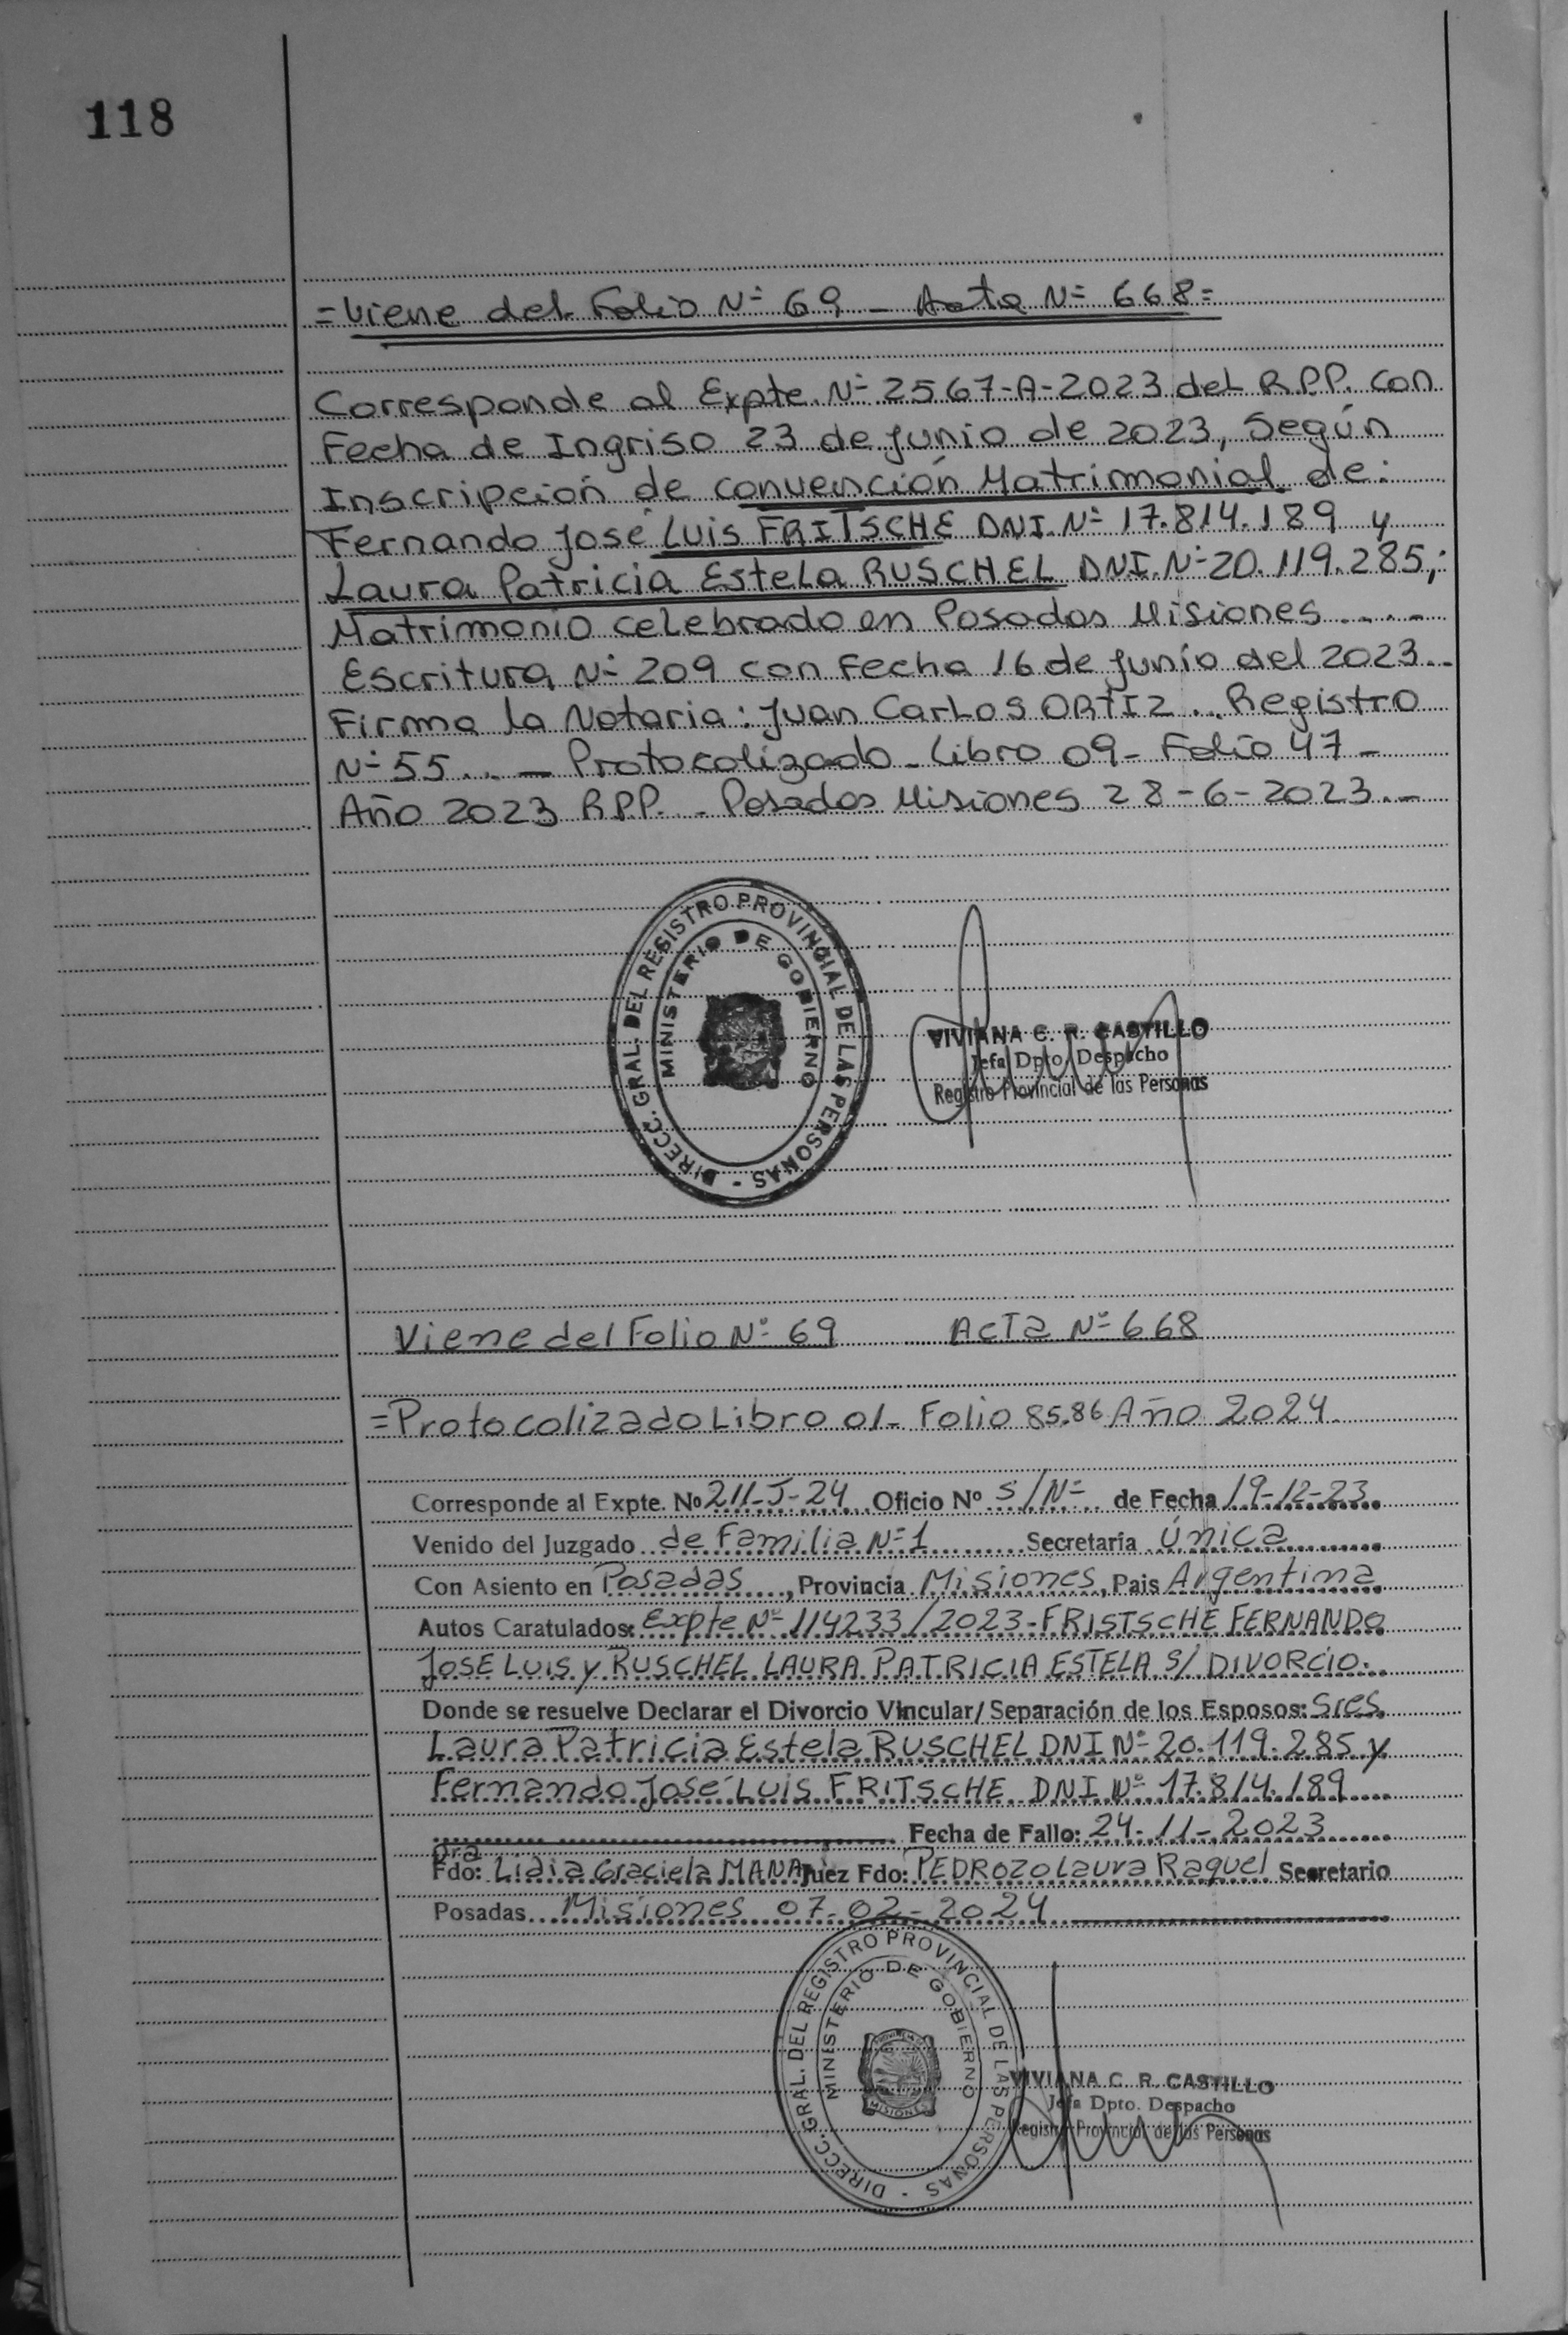 118
=Viene del Folio Nº 69 - Acta Nº 668=
Corresponde al Expte. Nº 2567-A-2023 del R.P.P. con
Fecha de Ingriso 23 de Junio de 2023, Según
Inscripción de convención Matrimonial de:
Fernando José Luis FRITSCHE DNI. Nº 17.814.189 y
Laura Patricia Estela RUSCHEL DNI. Nº 20.119.285,:
Matrimonio celebrado en Posadas Misiones.....
Escritura Nº 209 con Fecha 16 de Junio del 2023..
Firma la Notaria: Juan Carlos ORTIZ... Registro
Nº 55... - Protocolizado - Libro 09 - Folio 47 -
Año 2023 R.P.P. - Posadas Misiones 28-6-2023.-
DIRECC. GRAL. DEL REGISTRO PROVINCIAL DE LAS PERSONAS -
MINISTERIO DE GOBIERNO
VIVIANA C. R. CASTILLO
Jefa Dpto. Despacho
Registro Provincial de las Personas
Viene del Folio Nº 69 Acta Nº 668
=Protocolizado Libro 01- Folio 85.86 Año 2024.
Corresponde al Expte. Nº 211-J-24 Oficio Nº S/Nº de Fecha 19-12-23
Venido del Juzgado de Familia Nº 1 Secretaría Única
Con Asiento en Posadas, Provincia Misiones, Pais Argentina
Autos Caratulados: Expte Nº 114233/2023-FRISTSCHE FERNANDO
JOSE LUIS y RUSCHEL LAURA PATRICIA ESTELA S/ DIVORCIO.
Donde se resuelve Declarar el Divorcio Vincular/Separación de los Esposos: Sres.
Laura Patricia Estela RUSCHEL DNI Nº 20.119.285 y
Fernando José Luis FRITSCHE DNI Nº 17.814.189
Fecha de Fallo: 24-11-2023
Dra
Fdo: Lidia Graciela MANA Juez Fdo: PEDROZO Laura Raquel Secretario
Posadas Misiones 07-02-2024
DIRECC. GRAL. DEL REGISTRO PROVINCIAL DE LAS PERSONAS -
MINISTERIO DE GOBIERNO
MISIONES
VIVIANA C. R. CASTILLO
Jefa Dpto. Despacho
Registro Provincial de las Personas